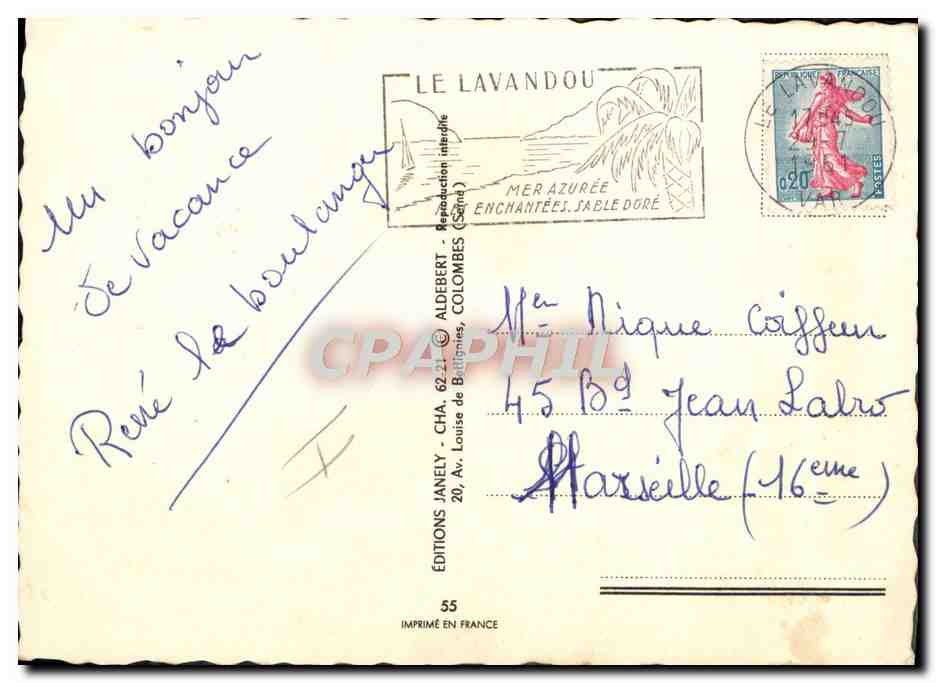 Un bonjour
de vacance
René le boulanger
LE LAVANDOU
MER AZURÉE
ENCHANTÉES. SABLE DORÉ
RÉPUBLIQUE FRANÇAISE
0,20
POSTES
LE LAVANDOU
1961
VAR
ÉDITIONS JANELY - CHA. 62-21 © ALDEBERT - Reproduction interdite
20, Av. Louise de Bettignies, COLOMBES (Seine)
CPAPHIL
Mer Nique Coiffeur
45 Bd Jean Labro
Marseille (16eme)
55
IMPRIMÉ EN FRANCE